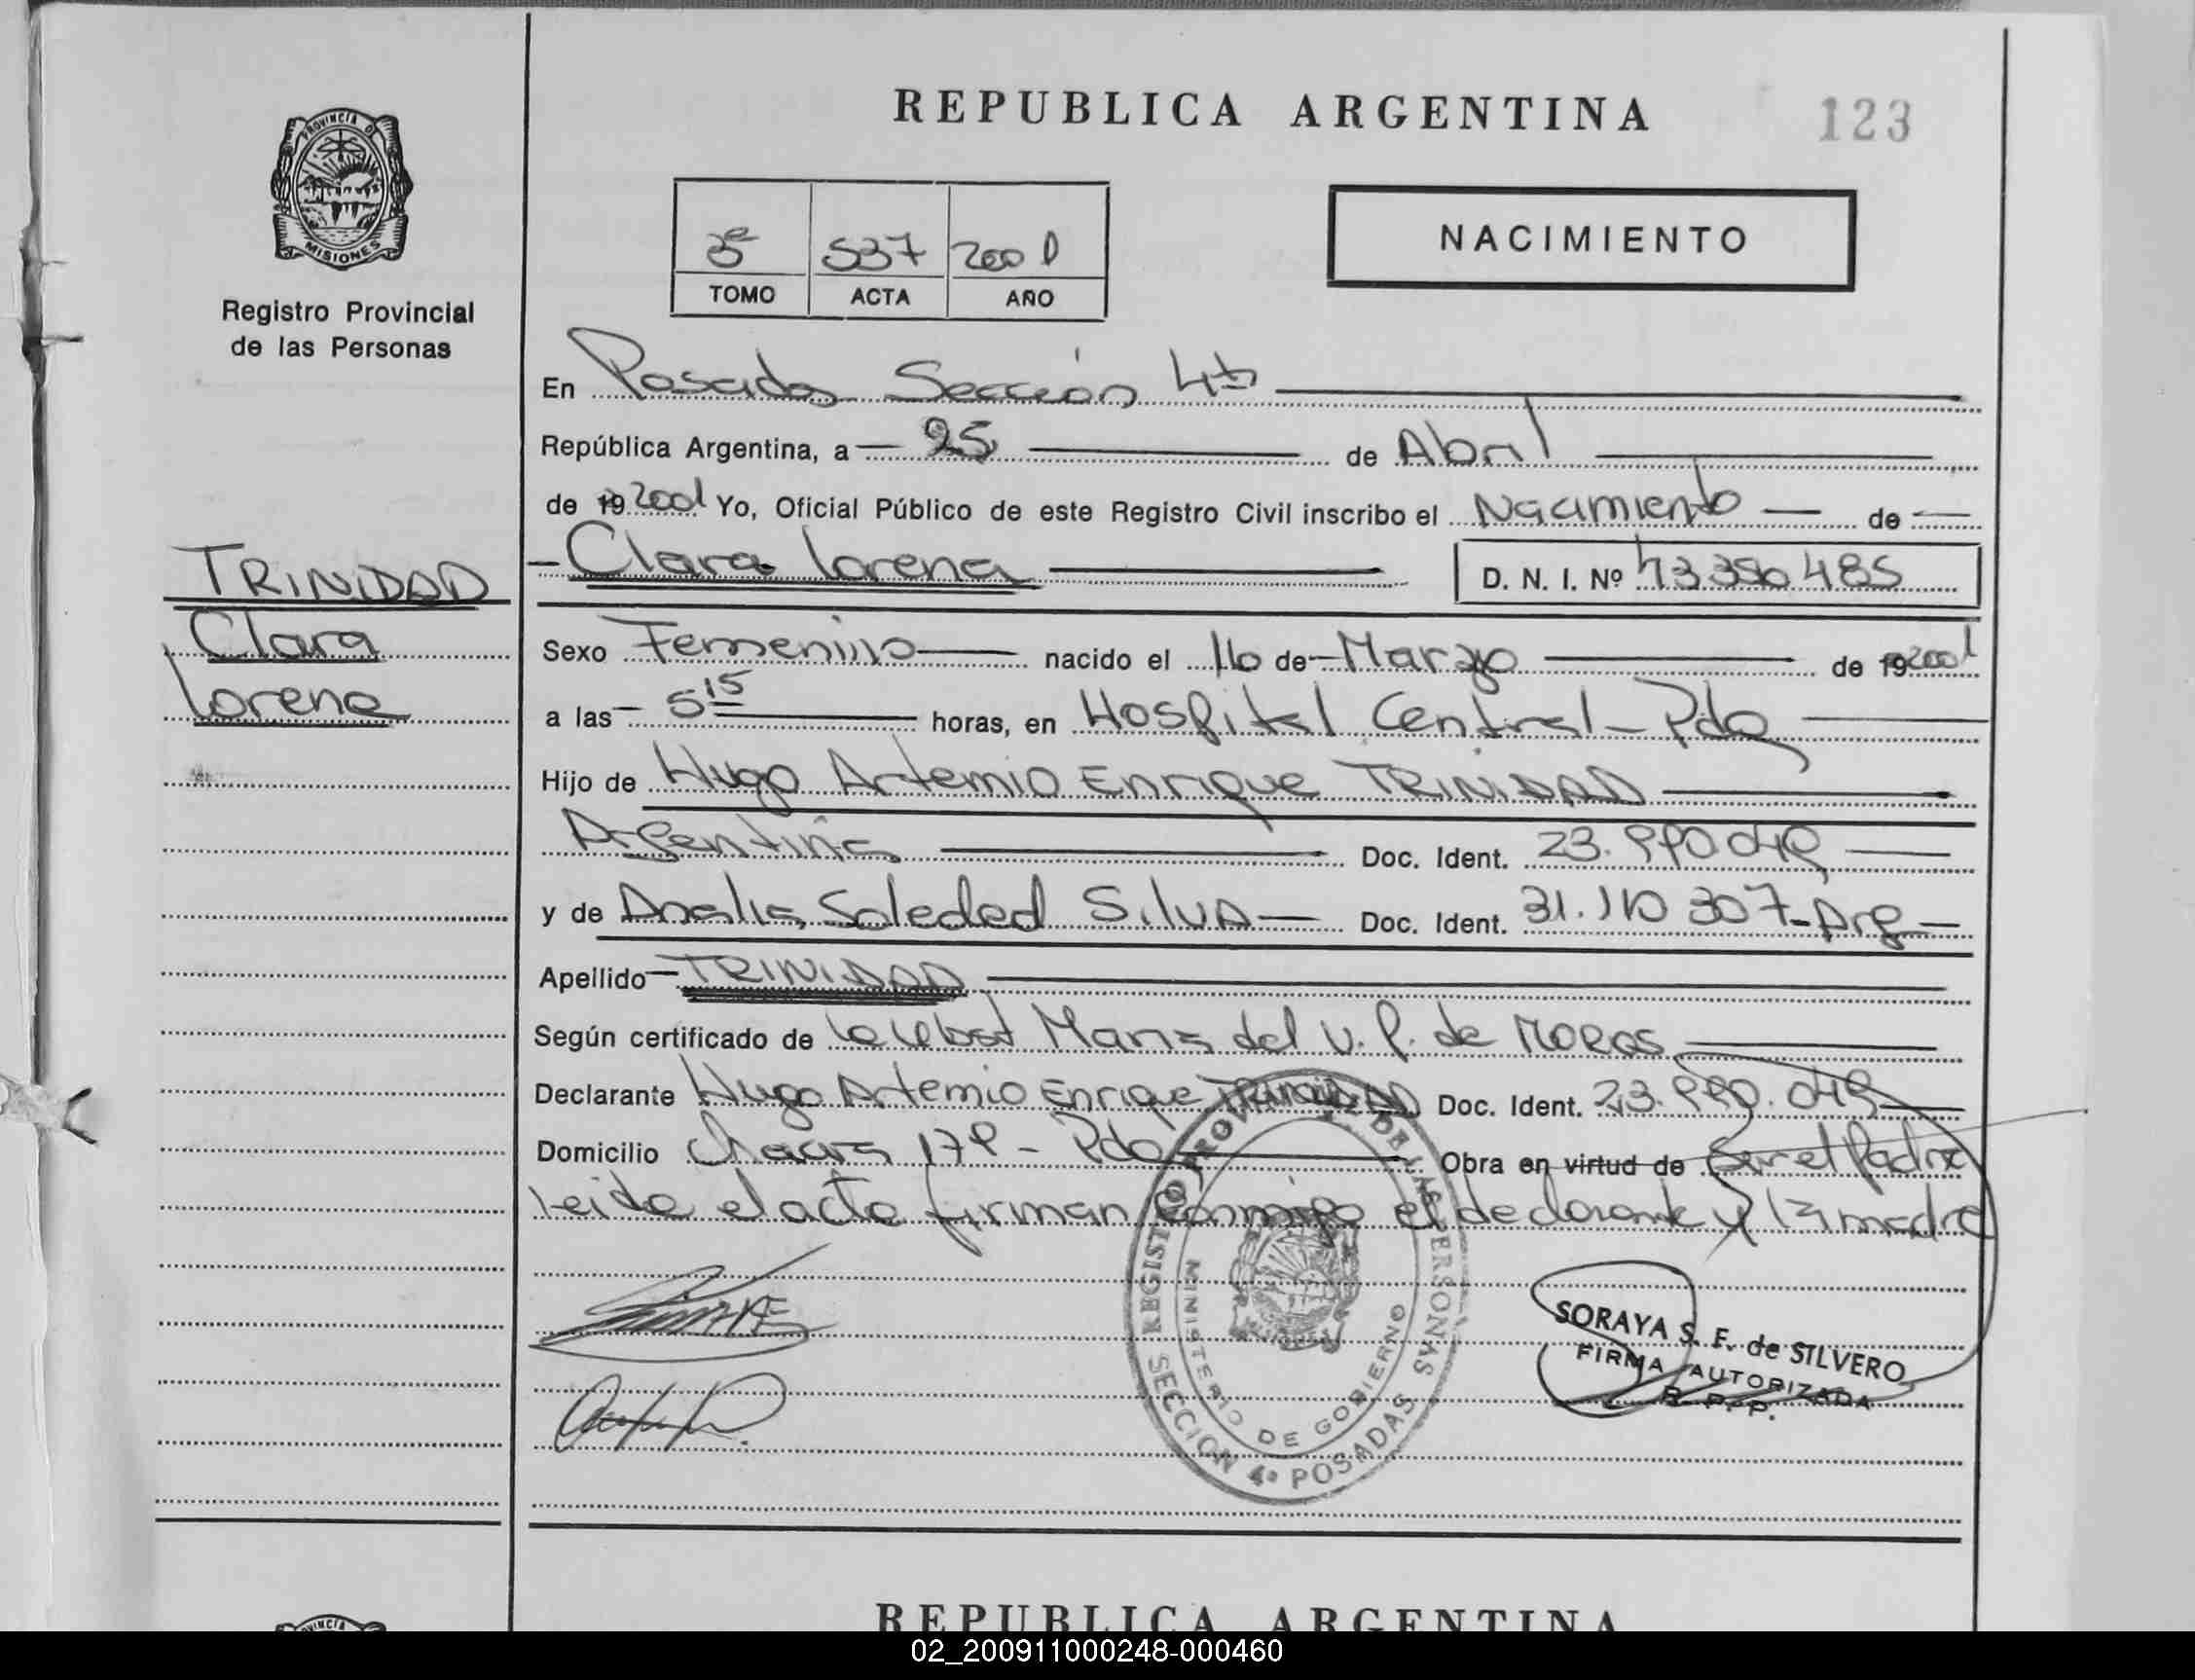 REPUBLICA ARGENTINA
123
PROVINCIA DE
MISIONES
Registro Provincial
de las Personas
3º 537 2001
TOMO ACTA AÑO
NACIMIENTO
En Posadas Sección 4ta
República Argentina, a 25 de Abril
de 19 2001 Yo, Oficial Público de este Registro Civil inscribo el Nacimiento de
Clara Lorena D. N. I. Nº 43.350.485
TRINIDAD
Clara
Lorena
Sexo Femenino nacido el 16 de Marzo de 19 2001
a las 5 15 horas, en Hospital Central - Pdas
Hijo de Hugo Artemio Enrique TRINIDAD
Argentina Doc. Ident. 23.990.049
y de Analia Soledad Silva Doc. Ident. 31.110.307 - Arg
Apellido TRINIDAD
Según certificado de la Obst Maria del V. P. de
Declarante Hugo Artemio Enrique TRINIDAD Doc. Ident. 23.990.049
Domicilio 179 - Pdas Obra en virtud de Ser el Padre
Leida el acta firman conmigo el declarante y la madre
REGISTRO PROVINCIAL DE LAS PERSONAS
MINISTERIO DE GOBIERNO
SECCION 4ª POSADAS
SORAYA S. F. de SILVERO
FIRMA AUTORIZADA
R. P. P.
REPUBLICA ARGENTINA
02_200911000248-000460